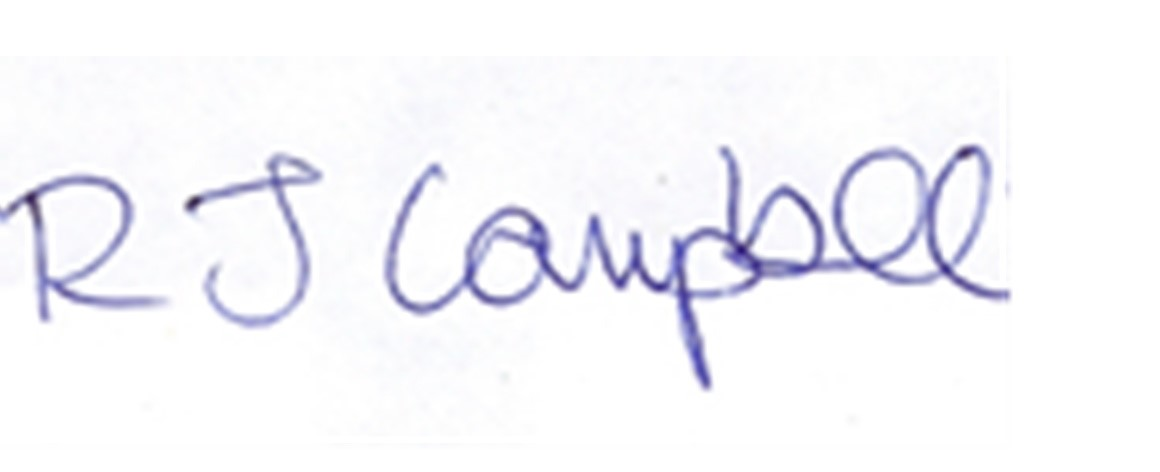 R J Campbell